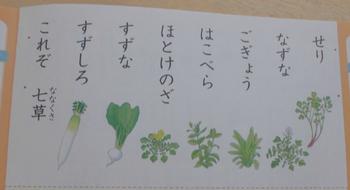 せり
なずな
ごぎょう
はこべら
ほとけのざ
すずな
すずしろ
これぞ 七草
ななくさ